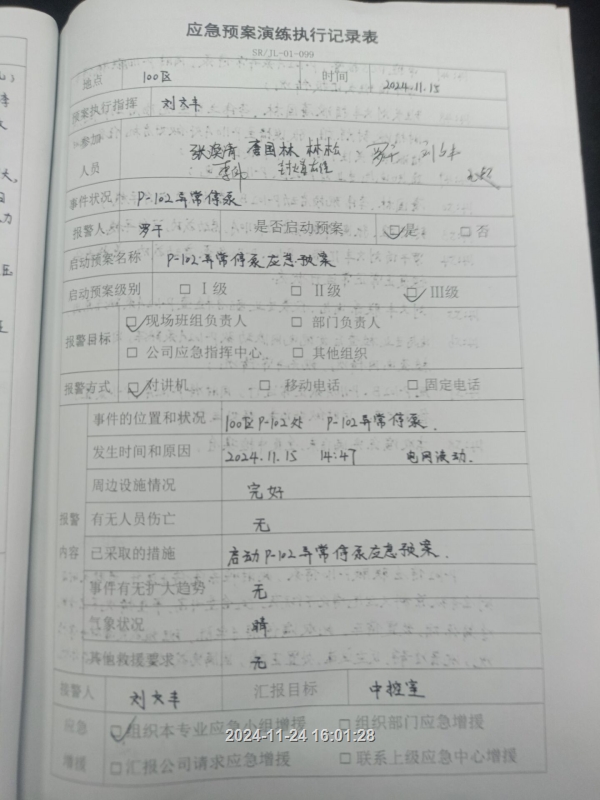 应急预案演练执行记录表
SR/JL-01-099
地点 100区 时间 2024.11.15
预案执行指挥 刘大丰
参加人员 张焕青 唐国林 林松 罗干
事件状况 P-102异常停泵
报警人 罗干 是否启动预案 ☑是 □否
启动预案名称 P-102异常停泵应急预案
启动预案级别 □Ⅰ级 □Ⅱ级 ☑Ⅲ级
报警目标 ☑现场班组负责人 □部门负责人
□公司应急指挥中心 □其他组织
报警方式 ☑对讲机 □移动电话 □固定电话
报警内容
事件的位置和状况 100区P-102处 P-102异常停泵.
发生时间和原因 2024.11.15 14:47 电网波动.
周边设施情况 完好
有无人员伤亡 无
已采取的措施 启动P-102异常停泵应急预案.
事件有无扩大趋势 无
气象状况 晴
其他救援要求 无
报警人 刘大丰 汇报目标 中控室
应急增援 ☑组织本专业应急小组增援 □组织部门应急增援
□汇报公司请求应急增援 □联系上级应急中心增援
2024-11-24 16:01:28